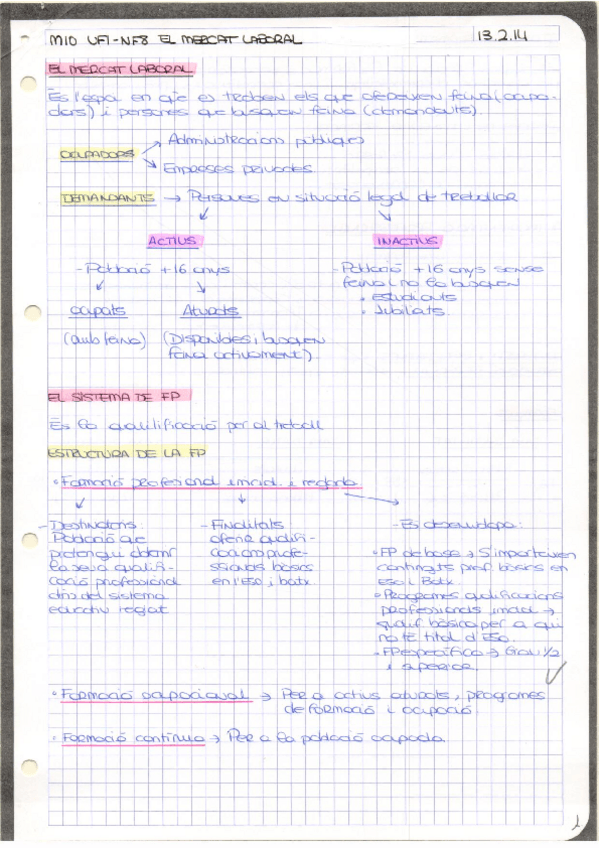 M10 UF1-NF8 EL MERCAT LABORAL 13.2.14
EL MERCAT LABORAL
És l'espai en què es troben els que ofereixen feina (ocupa-
dors) i persones que busquen feina (demandants).
OCUPADORS → Administracions públiques
→ Empreses privades
DEMANDANTS → Persones en situació legal de treballar
ACTIUS INACTIUS
- Població +16 anys
- Població +16 anys sense
feina i no la busquen
• estudiants
• Jubilats.
ocupats Aturats
(amb feina) (Disponibles i busquen
feina activament)
EL SISTEMA DE FP
És la qualificació per al treball
ESTRUCTURA DE LA FP
• Formació professional inicial i reglada
- Destinataris:
Població que
pretengui obtenir
la seva qualifi-
cació professional
dins del sistema
educatiu reglat
- Finalitats
oferir qualifi-
cacions profe-
ssionals bàsics
en l'Eso i batx.
- Es desenvolupa:
• FP de base → S'imparteixen
continguts prof. bàsics en
eso i Batx.
• Programes qualificacions
professionals inicial →
qualif. bàsica per a qui
no té títol d'Eso.
- FP específica → Grau 1/2
i superior.
• Formació ocupacional → Per a actius aturats, programes
de formació i ocupació
• Formació contínua → Per a la població ocupada.
1